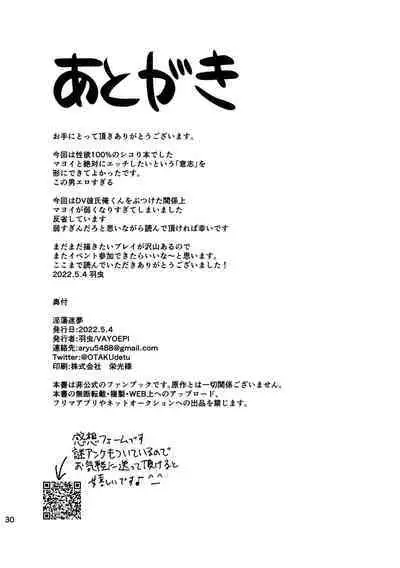 あとがき
お手にとって頂きありがとうございます。
今回は性欲100%のシコり本でした
マヨイと絶対にエッチしたいという「意志」を
形にできてよかったです。
この男エロすぎる
今回はDV彼氏俺くんをぶつけた関係上
マヨイが弱くなりすぎてしまいました
反省しています
弱すぎんだろと思いながら読んで頂ければ幸いです
まだまだ描きたいプレイが沢山あるので
またイベント参加できたらいいな〜と思います。
ここまで読んでいただきありがとうございました！
2022.5.4 羽虫
奥付
淫蕩迷夢
発行日:2022.5.4
発行者:羽虫/VAYOEPI
連絡先:aryu5488@gmail.com
Twitter:@OTAKUdetu
印刷:株式会社　栄光様
本書は非公式のファンブックです。原作とは一切関係ございません。
本書の無断転載・複製・WEB上へのアップロード、
フリマアプリやネットオークションへの出品を禁じます。
感想フォームです
謎アンケもついているので
お気軽に送って頂けると
嬉しいですよ^^
30